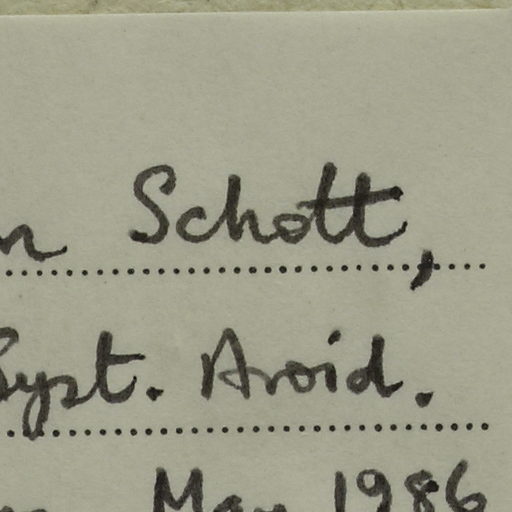 n Schott,
Syst. Aroid.
May 1986